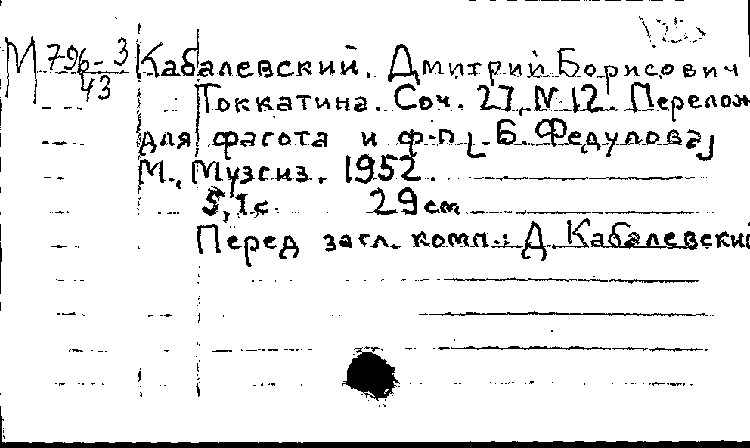 М 796-3/43 Кабалевский, Дмитрий Борисович
Токкатина. Соч. 27, N 12. Перелож
для фагота и ф-п Б. Федулова
М., Музгиз. 1952
5, 1 с. 29 см
Перед загл. комп.: Д. Кабалевский